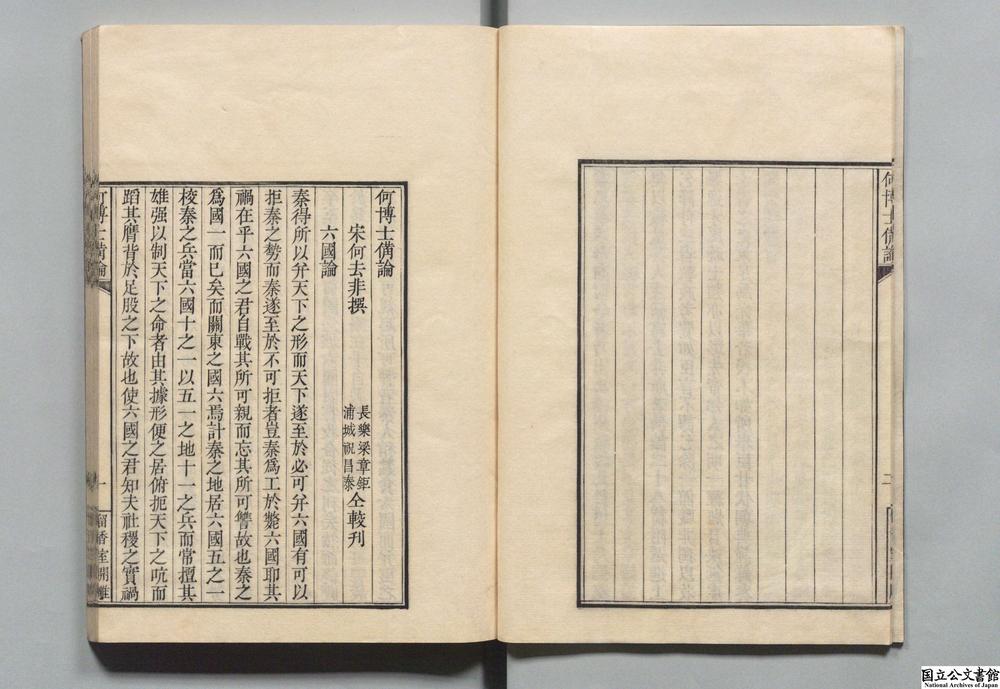 何博士備論
二
何博士備論
宋何去非撰
長樂梁章鉅
浦城祝昌泰
仝較刊
六國論
秦得所以并天下之形而天下遂至於必可并六國有可以
拒秦之勢而秦遂至於不可拒者豈秦爲工於斃六國耶其
禍在乎六國之君自戰其所可親而忘其所可讐故也秦之
爲國一而已矣而關東之國六焉計秦之地居六國五之一
校秦之兵當六國十之一以五一之地十一之兵而常擅其
雄强以制天下之命者由其據形便之居俯扼天下之吭而
蹈其膺背於足股之下故也使六國之君知夫社稷之實禍
何博士備論
一
留香室開雕
国立公文書館
National Archives of Japan